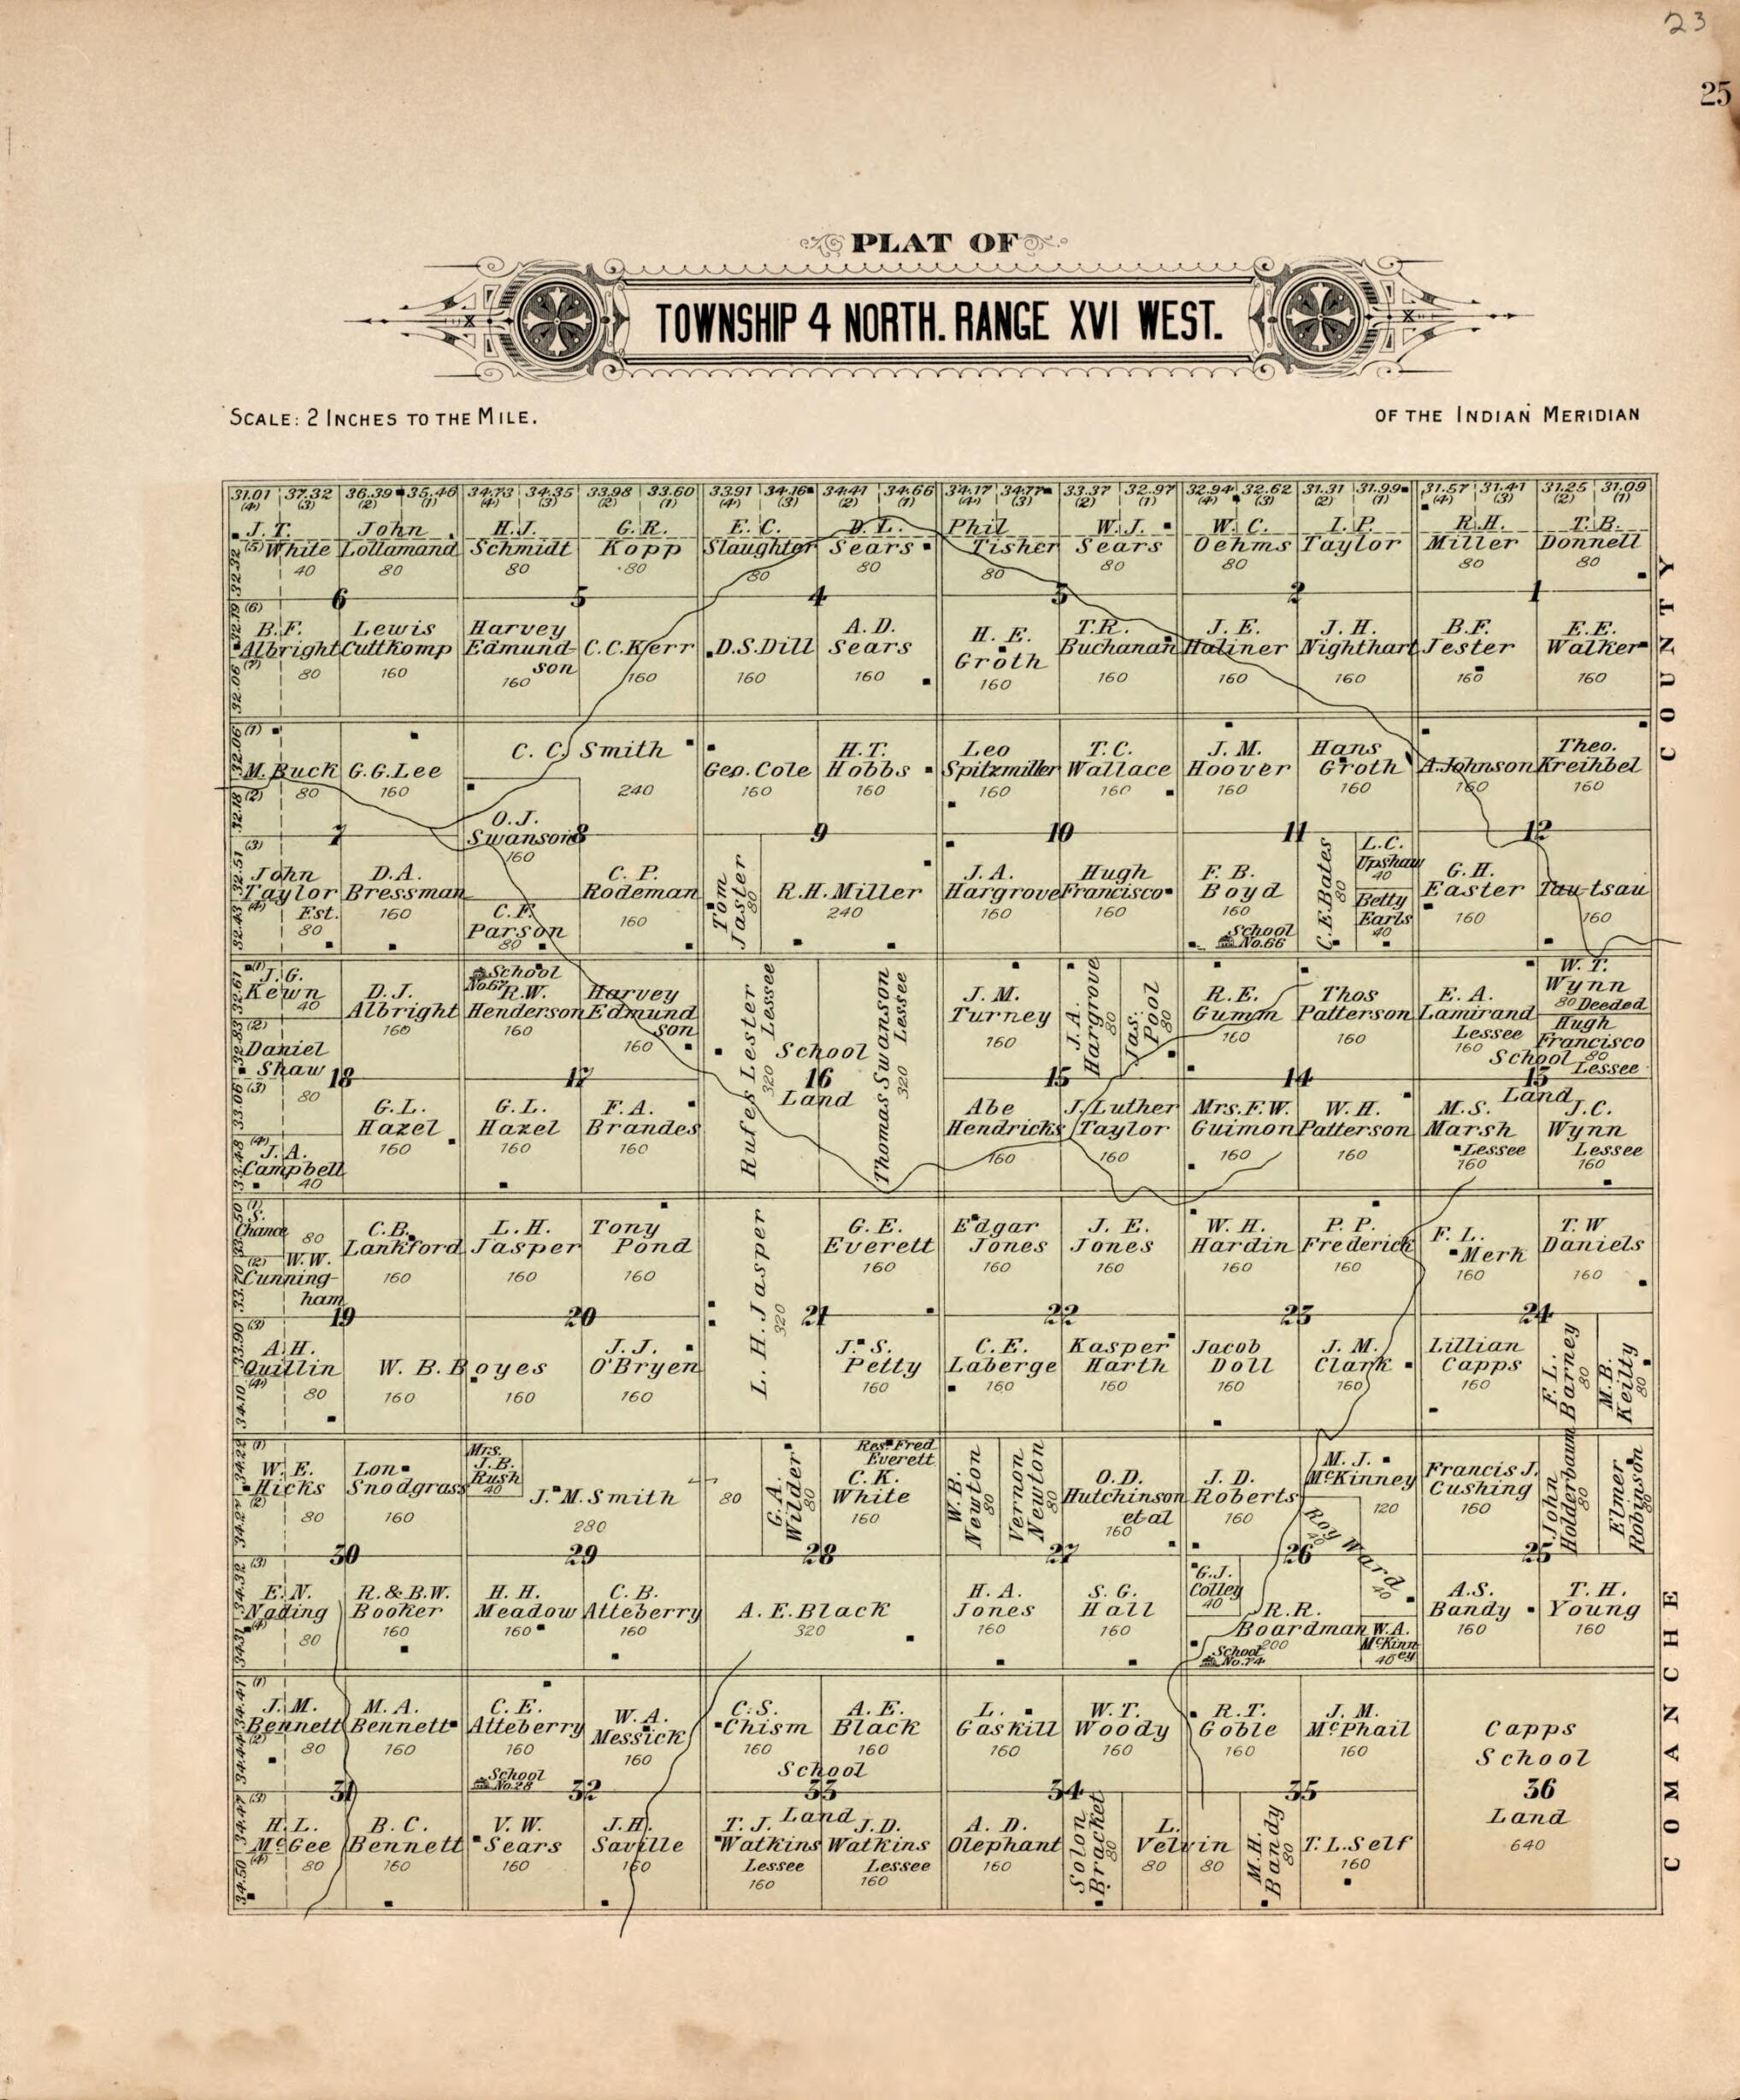 23
25
PLAT OF
TOWNSHIP 4 NORTH. RANGE XVI WEST.
SCALE: 2 INCHES TO THE MILE.
OF THE INDIAN MERIDIAN
31.01 37.32 36.39 35.46 34.73 34.35 33.98 33.60 33.91 34.16 34.41 34.66 34.17 34.77 33.37 32.97 32.94 32.62 31.31 31.99 31.57 31.41 31.25 31.09
(4) (3) (2) (1) (4) (3) (2) (1) (4) (3) (2) (1) (4) (3) (2) (1) (4) (3) (2) (1) (4) (3) (2) (1)
J. T. John H.J. G. R. E. C. D. L. Phil W. J. W. C. I. P. R.H. T. B.
(5) White Lollamand Schmidt Kopp Slaughter Sears Tisher Sears Oehms Taylor Miller Donnell
40 80 80 80 80 80 80 80 80 80 80
32.32
6 5 4 3 2 1
(6)
32.19
B.F. Lewis Harvey A. D. H. E. T.R. J. E. J. H. B.F. E.E.
Albright Cuttkomp Edmund- C.C.Kerr D.S.Dill Sears Groth Buchanan Haliner Nighthart Jester Walker
son
(7) 80 160 160 160 160 160 160 160 160 160 160 160
32.06
COUNTY
32.06 (1)
C. C. Smith H.T. Leo T. C. J. M. Hans Theo.
M. Buck G.G.Lee Geo. Cole Hobbs Spitzmiller Wallace Hoover Groth A.Johnson Kreihbel
(2) 80 160 240 160 160 160 160 160 160 160 160
32.18
O.J.
Swanson
160
7 8 9 10 11 12
(3)
32.51
John D.A. C. P. Tom Jaster 80 R.H.Miller J.A. Hugh F. B. C.E.Bates 80 L.C. G. H. Tau-tsau
Taylor Bressman Rodeman 240 Hargrove Francisco Boyd Upshaw Easter
(4) Est. 160 C. F. 160 160 160 160 40 160 160
80 Parson Betty
80 Earls
40
32.43
School
No.66
(1)
32.67
J.G. D.J. School Harvey Rufes Lester Lessee Thomas Swanson Lessee J. M. J.A. Jas. R.E. Thos E. A. W. T.
Kewn Albright No.67 Edmund Turney Hargrove Pool Gumm Patterson Lamirand Wynn
40 160 R.W. son 320 320 160 80 80 160 160 Lessee 80 Deeded
(2) Henderson 160 160 Hugh
32.83 160 Francisco
Daniel School School 80
Shaw Lessee
18 17 16 15 14 13
(3) 80
33.06
Land Land
G.L. G. L. F. A. Abe J. Luther Mrs.F.W. W. H. M.S. J.C.
Hazel Hazel Brandes Hendricks Taylor Guimon Patterson Marsh Wynn
160 160 160 160 160 160 160 Lessee Lessee
160 160
(4)
33.48
J. A.
Campbell
40
(1)
33.50
S.
Chance 80 C.B. L. H. Tony L. H. Jasper G. E. Edgar J. E. W. H. P. P. F. L. T. W
(2) W.W. Lankford Jasper Pond 320 Everett Jones Jones Hardin Frederick Merk Daniels
Cunning- 160 160 160 160 160 160 160 160 160 160
ham
33.70
19 20 21 22 23 24
(3)
33.90
A. H. W. B. Boyes J. J. J. S. C. E. Kasper Jacob J. M. Lillian F. L. M.B.
Quillin O'Bryen Petty Laberge Harth Doll Clark Capps Barney Keilty
(4) 80 160 160 160 160 160 160 160 160 160 80 80
34.10
(1)
34.22
W. E. Lon Mrs. J. M. Smith 80 G.A. Res. Fred W.B. Vernon O.D. J. D. M. J. Francis J. John Elmer
Hicks Snodgrass J.B. 280 Wilder Everett Newton Newton Hutchinson Roberts McKinney Cushing Holderbaum Robinson
(2) 80 160 Rush 80 C. K. 80 80 et al 160 120 160 80 80
40 White 160
160
34.27
Roy Ward
40 40
30 29 28 27 26 25
(3)
34.32
E. N. R. & B.W. H. H. C. B. A. E. Black H. A. S. G. G.J. A.S. T. H.
Nading Booker Meadow Atteberry 320 Jones Hall Colley Bandy Young
(4) 80 160 160 160 160 160 40 160 160
R. R.
Boardman
200
W. A.
McKinn
ey
40
School
No.74
34.37
(1)
34.41
J. M. M. A. C. E. W. A. C. S. A. E. L. W. T. R. T. J. M. Capps
Bennett Bennett Atteberry Messick Chism Black Gaskill Woody Goble McPhail School
(2) 80 160 160 160 160 160 160 160 160 160
School School
No.28
34.44
31 32 33 34 35 36
(3) Land Land
34.47
H.L. B. C. V. W. J.H. T. J. J.D. A. D. Solon L. M.H. T. L. Self 640
McGee Bennett Sears Saville Watkins Watkins Olephant Bracket Velvin Bandy 160
(4) 80 160 160 160 Lessee Lessee 160 80 80 80 80
160 160
34.50
COMANCHE